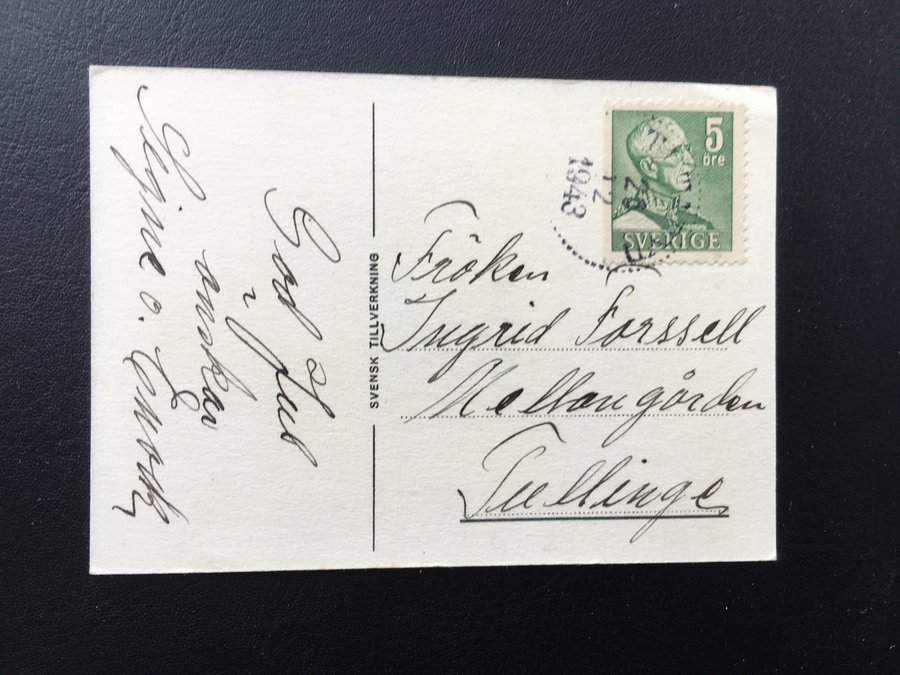 God Jul
önskar
Signe o. Enock
SVENSK TILLVERKNING
5
öre
SVERIGE
23
12
1943
Fröken
Ingrid Forssell
Mellangården
Tullinge